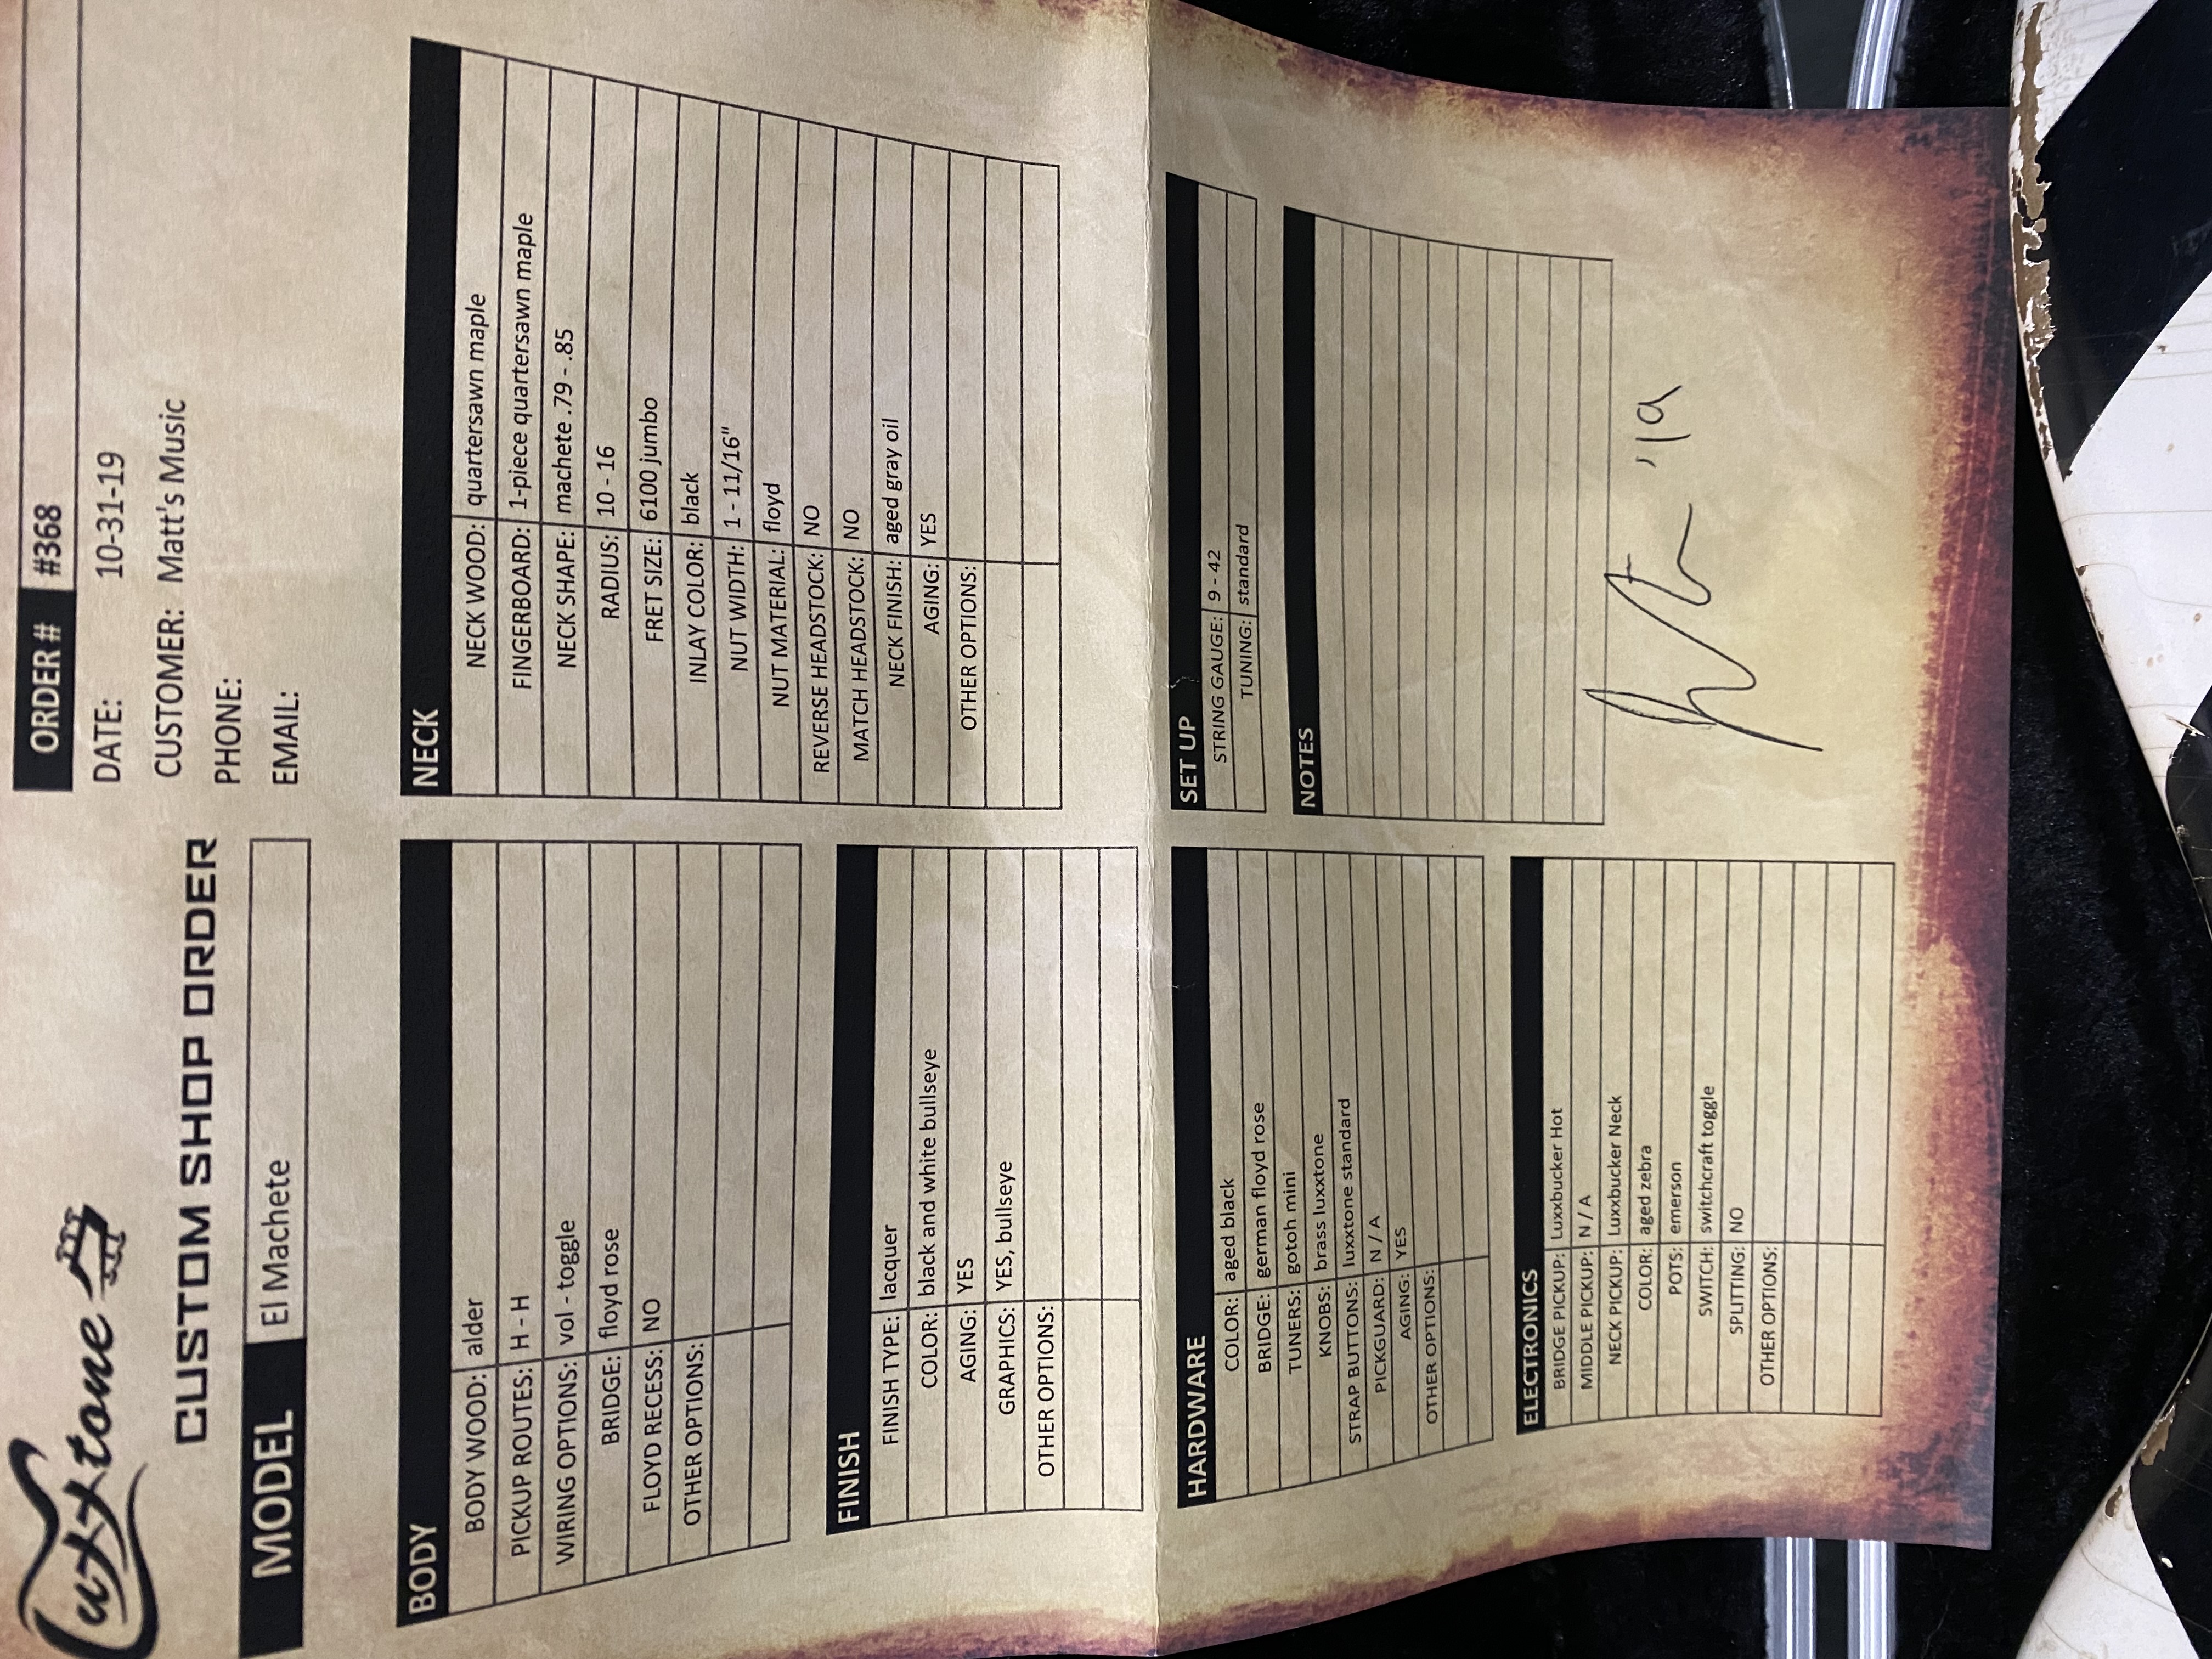 Luxxtone
CUSTOM SHOP ORDER
MODEL El Machete
ORDER # #368
DATE: 10-31-19
CUSTOMER: Matt's Music
PHONE:
EMAIL:
BODY
BODY WOOD: alder
PICKUP ROUTES: H - H
WIRING OPTIONS: vol - toggle
BRIDGE: floyd rose
FLOYD RECESS: NO
OTHER OPTIONS:
FINISH
FINISH TYPE: lacquer
COLOR: black and white bullseye
AGING: YES
GRAPHICS: YES, bullseye
OTHER OPTIONS:
NECK
NECK WOOD: quartersawn maple
FINGERBOARD: 1-piece quartersawn maple
NECK SHAPE: machete .79 - .85
RADIUS: 10 - 16
FRET SIZE: 6100 jumbo
INLAY COLOR: black
NUT WIDTH: 1 - 11/16"
NUT MATERIAL: floyd
REVERSE HEADSTOCK: NO
MATCH HEADSTOCK: NO
NECK FINISH: aged gray oil
AGING: YES
OTHER OPTIONS:
HARDWARE
COLOR: aged black
BRIDGE: german floyd rose
TUNERS: gotoh mini
KNOBS: brass luxxtone
STRAP BUTTONS: luxxtone standard
PICKGUARD: N / A
AGING: YES
OTHER OPTIONS:
ELECTRONICS
BRIDGE PICKUP: Luxxbucker Hot
MIDDLE PICKUP: N / A
NECK PICKUP: Luxxbucker Neck
COLOR: aged zebra
POTS: emerson
SWITCH: switchcraft toggle
SPLITTING: NO
OTHER OPTIONS:
SET UP
STRING GAUGE: 9 - 42
TUNING: standard
NOTES
'19